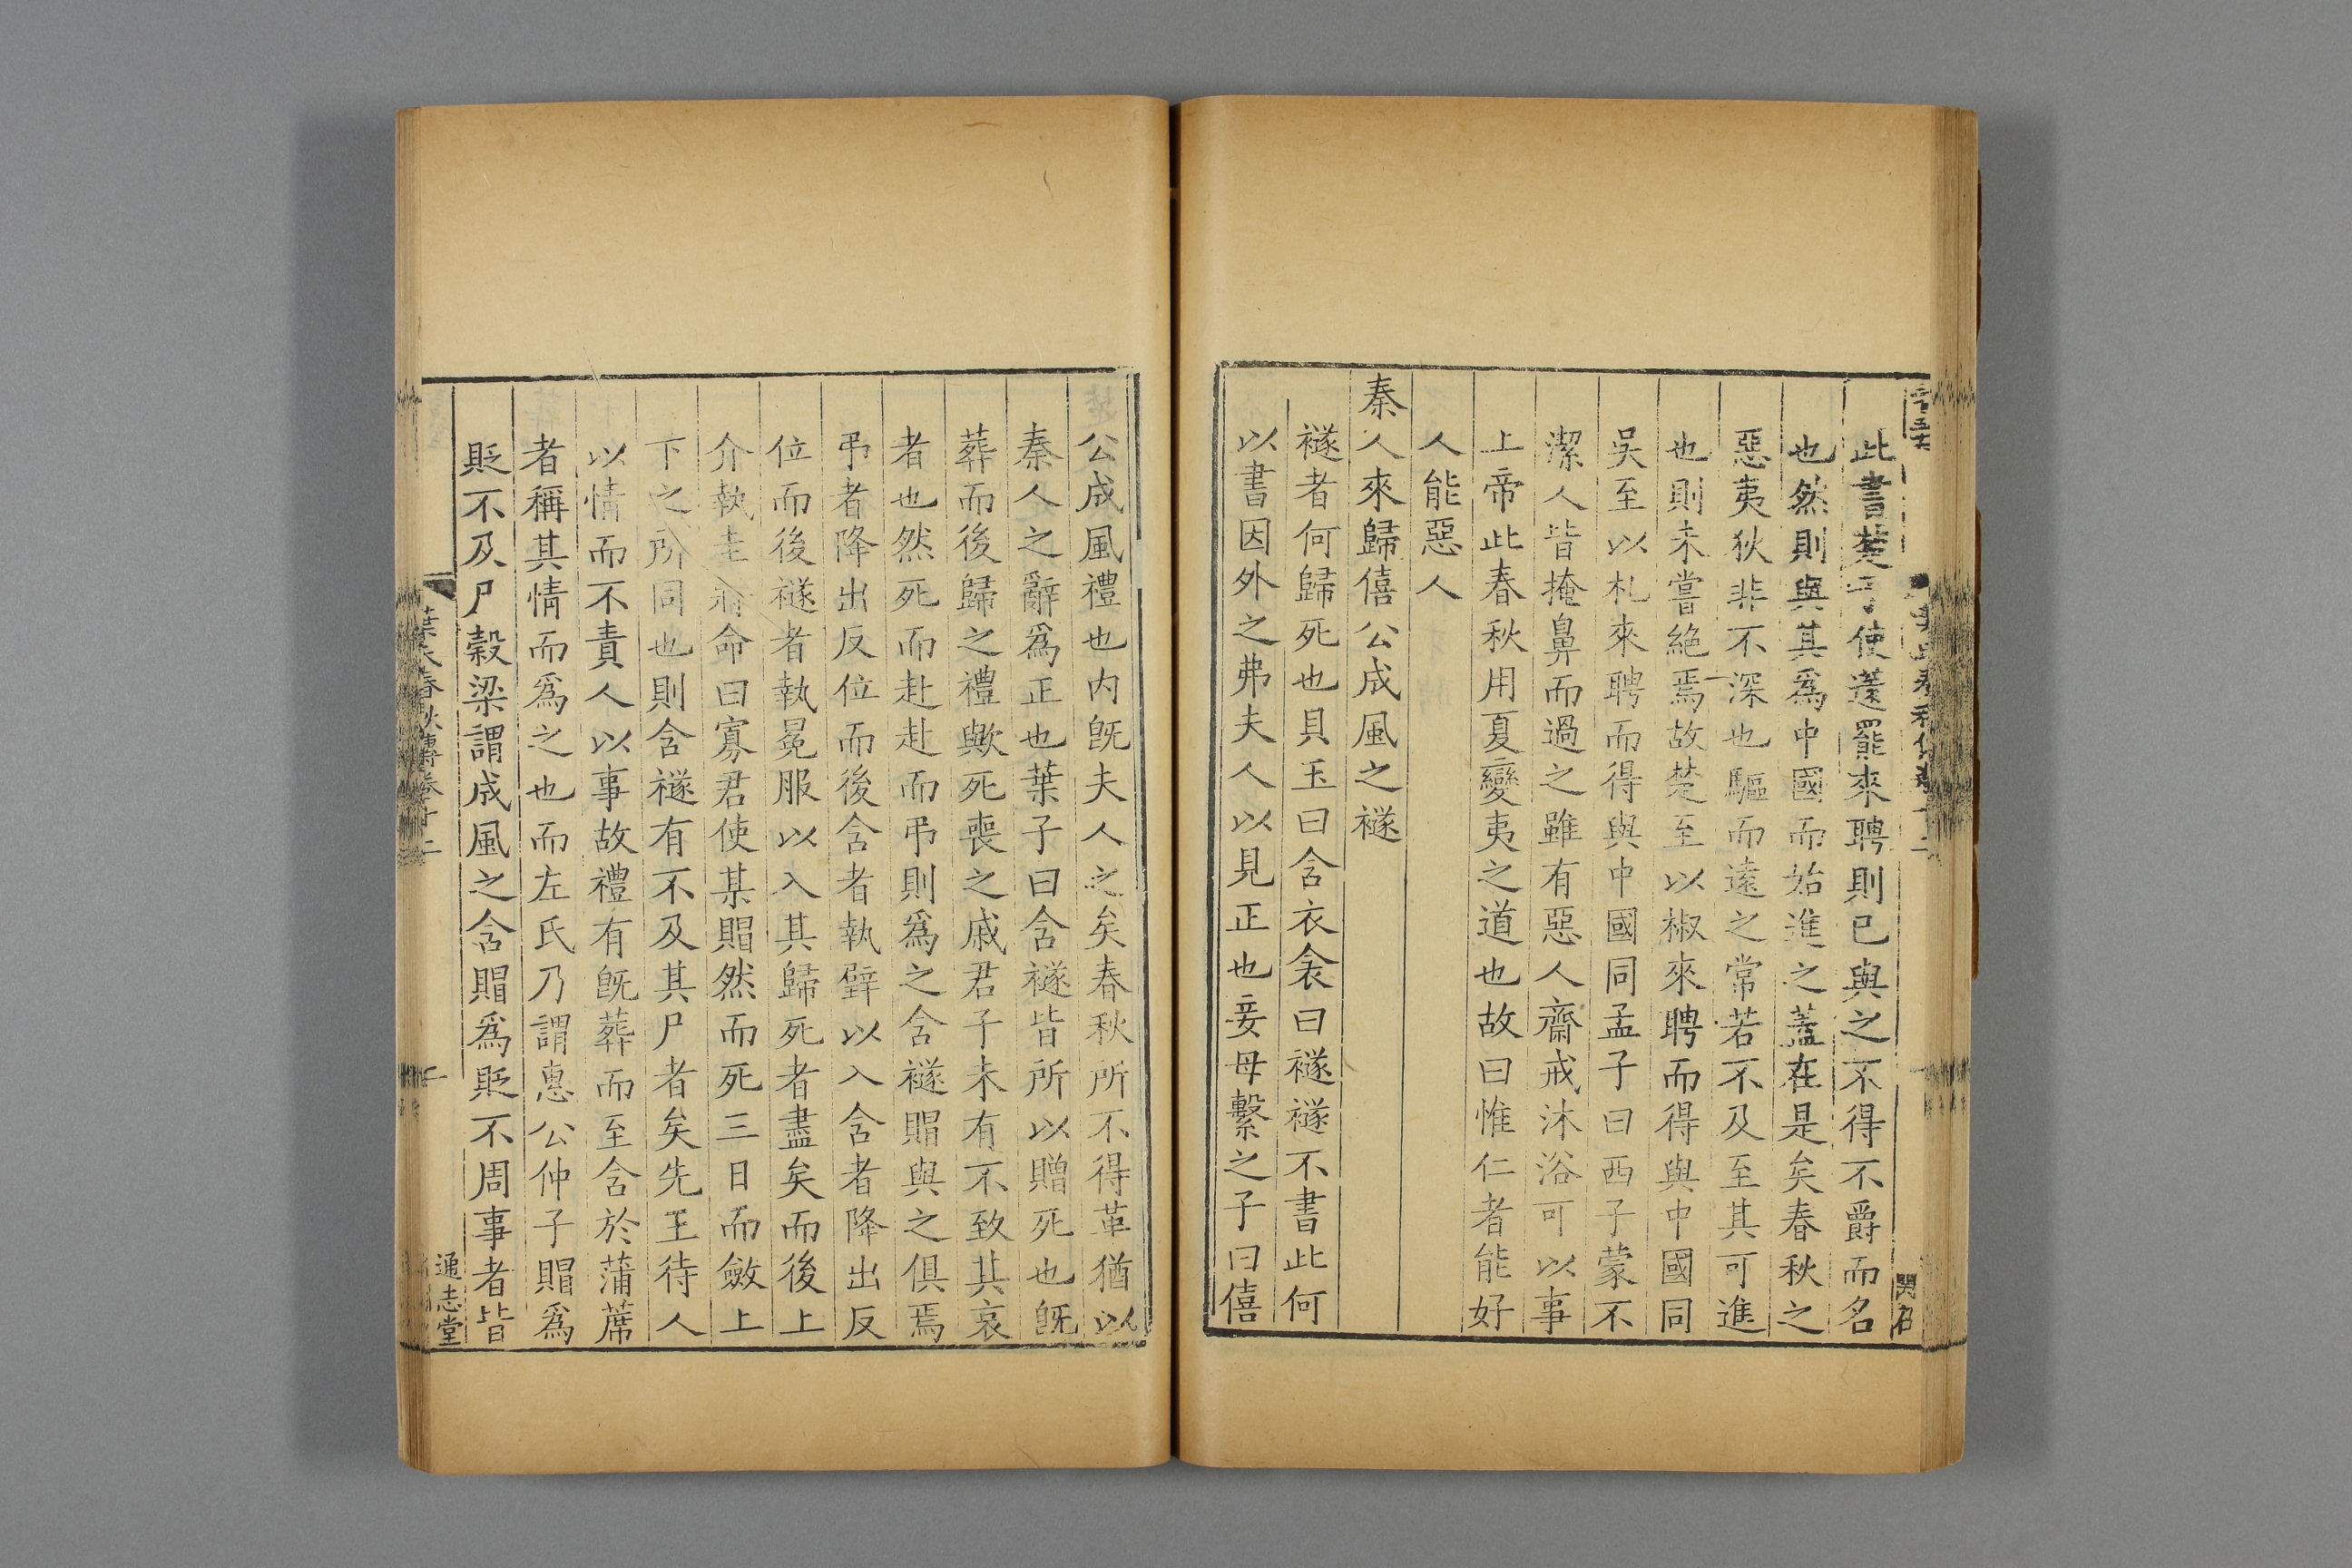 此書楚子使薳罷來聘則已與之不得不爵而名
也然則與其爲中國而始進之蓋在是矣春秋之
惡夷狄非不深也驅而遠之常若不及至其可進
也則未嘗絶焉故楚至以椒來聘而得與中國同
吳至以札來聘而得與中國同孟子曰西子蒙不
潔人皆掩鼻而過之雖有惡人齋戒沐浴可以事
上帝此春秋用夏變夷之道也故曰惟仁者能好
人能惡人
秦人來歸僖公成風之襚
襚者何歸死也貝玉曰含衣衾曰襚襚不書此何
以書因外之弗夫人以見正也妾母繫之子曰僖
公成風禮也内旣夫人之矣春秋所不得革猶以
秦人之辭爲正也葉子曰含襚皆所以贈死也旣
葬而後歸之禮歟死喪之戚君子未有不致其哀
者也然死而赴赴而弔則爲之含襚賵與之俱焉
弔者降出反位而後含者執璧以入含者降出反
位而後襚者執冕服以入其歸死者盡矣而後上
介執圭將命曰寡君使某賵然而死三日而斂上
下之所同也則含襚有不及其尸者矣先王待人
以情而不責人以事故禮有旣葬而至含於蒲蓆
者稱其情而爲之也而左氏乃謂惠公仲子賵爲
貶不及尸穀梁謂成風之含賵爲貶不周事者皆
葉氏春秋傳卷十二
通志堂